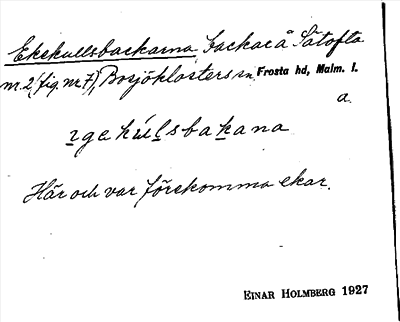 Ekskullsbackarna, backar å Sätofta
nr. 2 (fig. nr 7), Bosjöklosters sn, Frosta hd, Malm. l.
a.
ɪgekúlsbakana
Här och var förekomma ekar.
EINAR HOLMBERG 1927